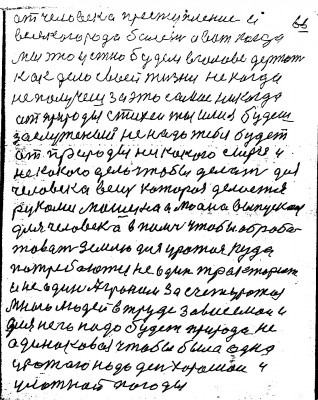 66
от человека преступление и
всякого рода болезни а вот когда
мы это устно будем в голове держат
как дело своей жизни не когда
не получем за это самое никогда
от природы стихеи мы ими будем
не надо тебя будет
от природы никакого и
не какого дела чтобы делат для
человека вещ которая делается
руками машина а она выпускает
для человека в помич чтобы обработа
товат землю для урожая куда
потребается не один тракторист
и не один Агроном За счет урожая
много людей в труде зависемой и
для него надо будет природа не
одинаковая чтобы была одна
урожаю надо ден хороший и
уютной погоды